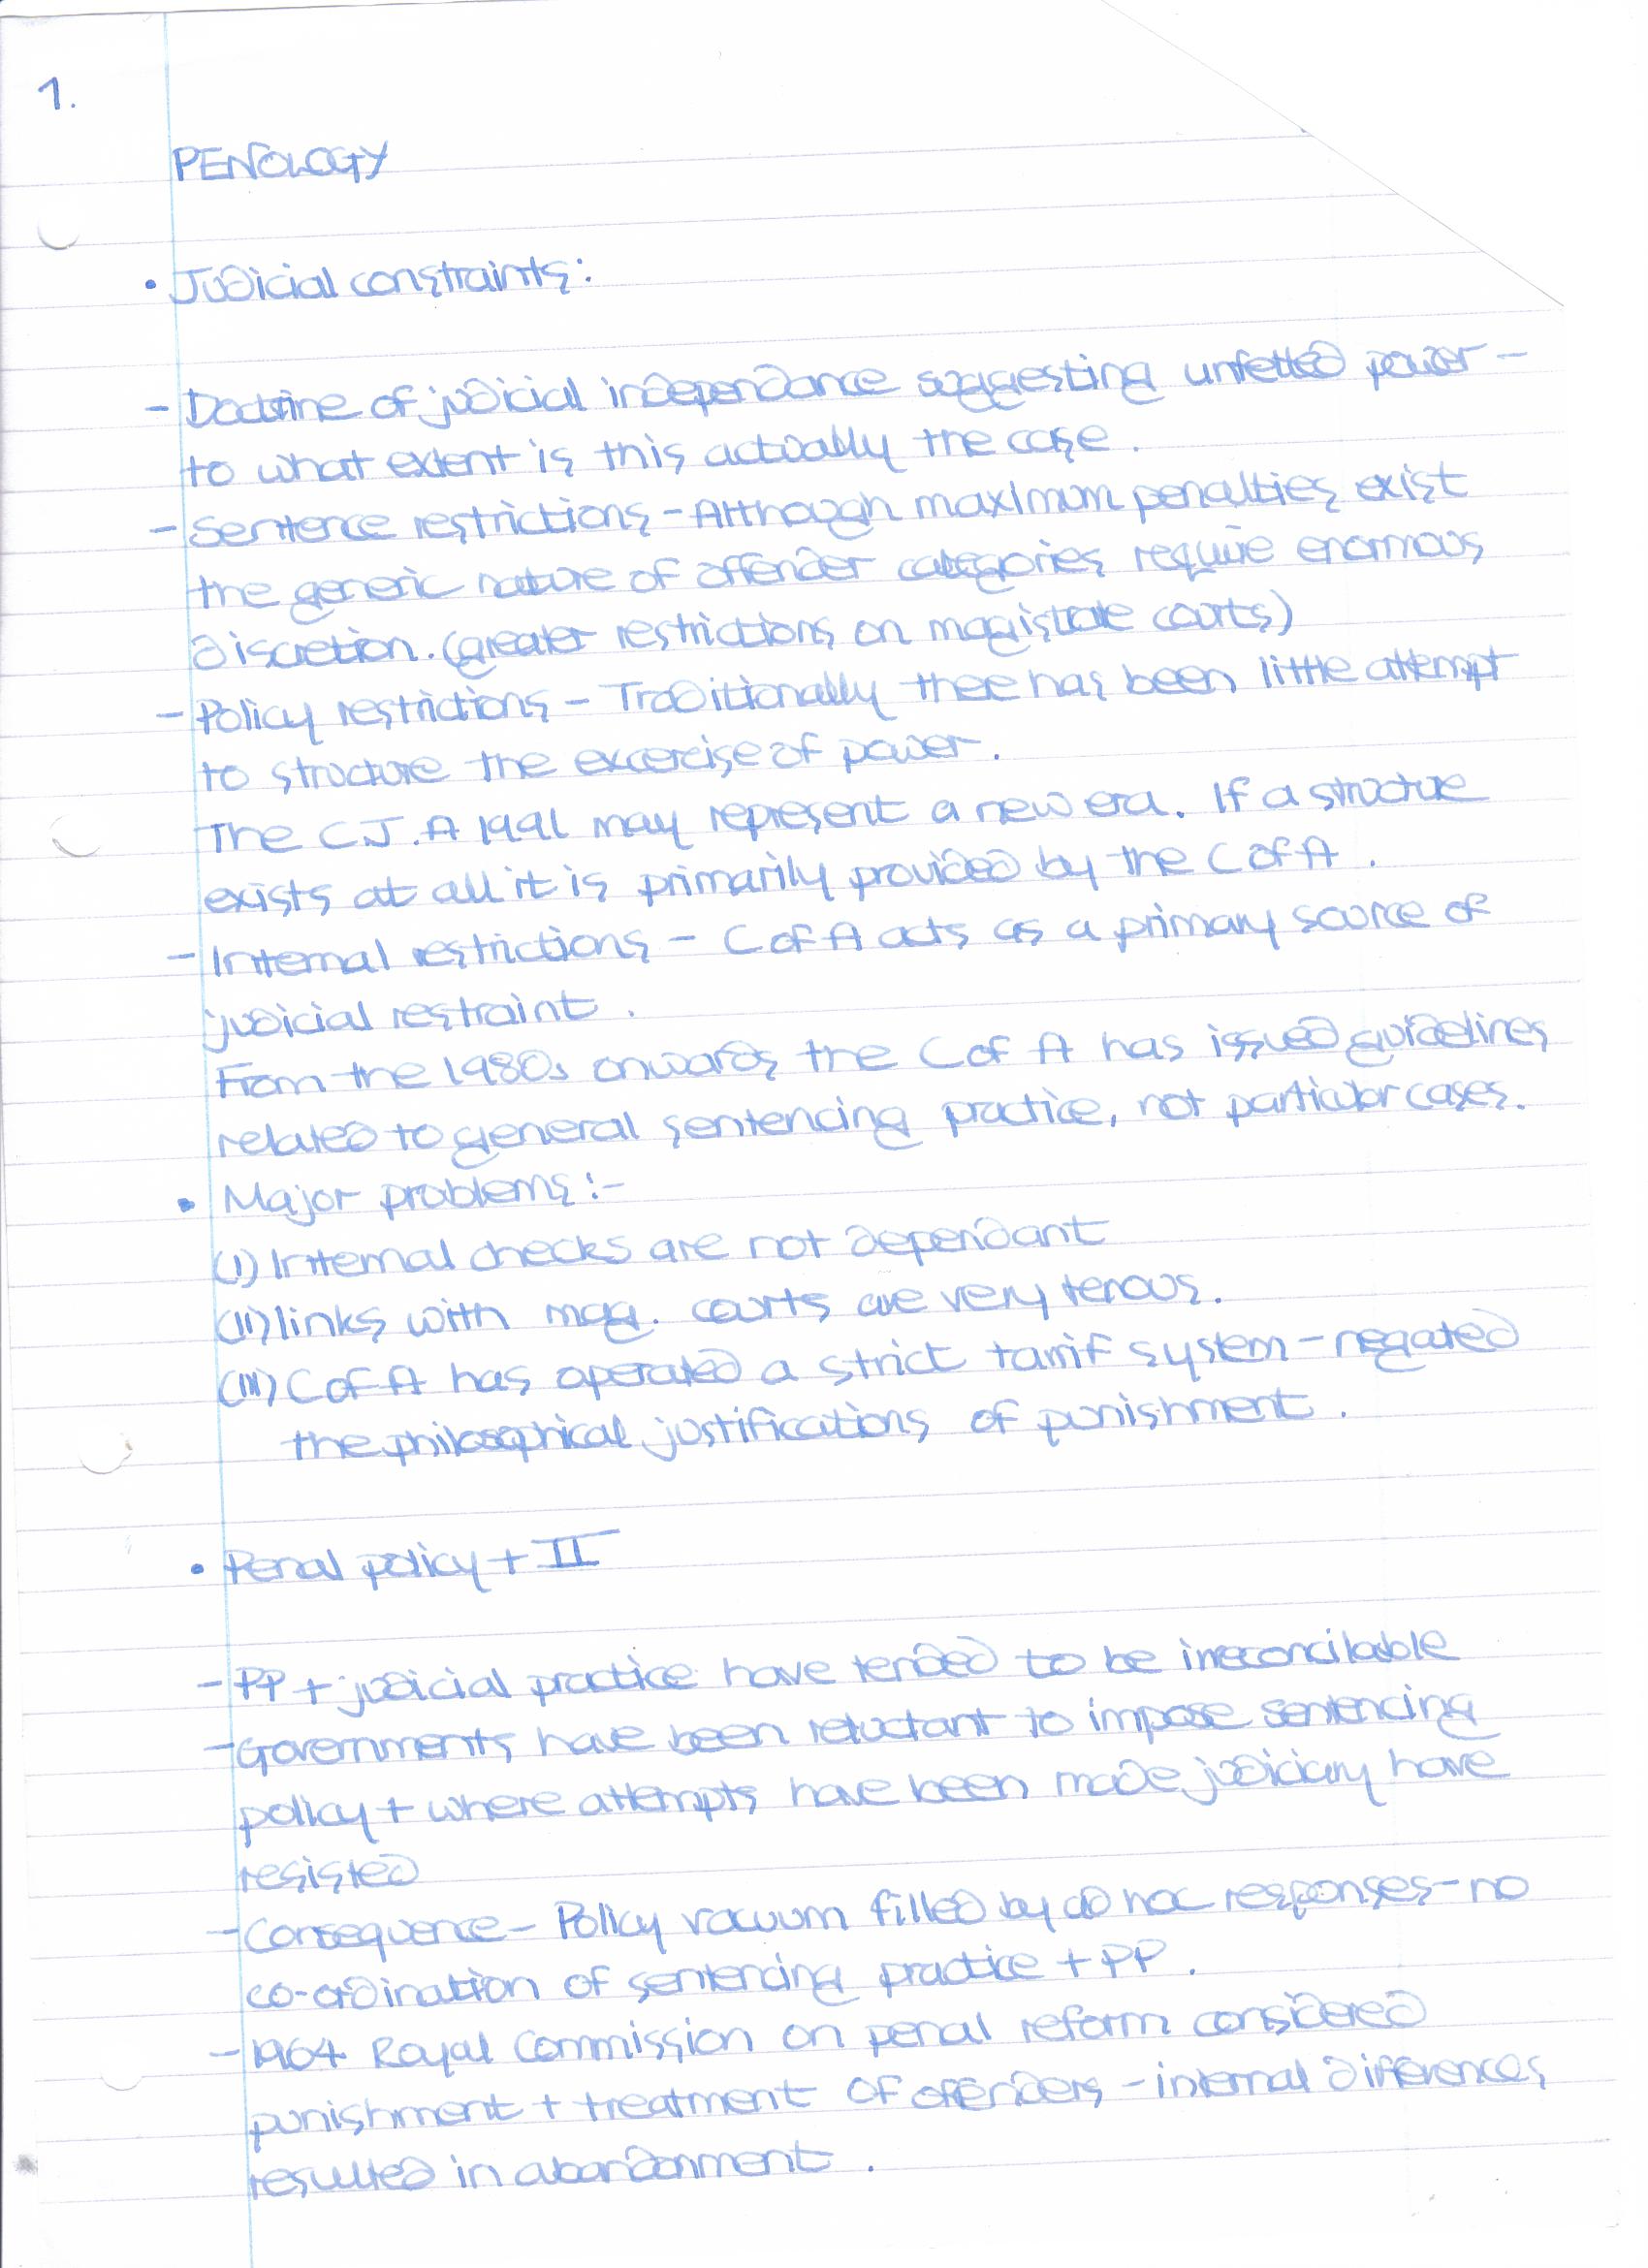 1.
PENOLOGY
• Judicial constraints:
- Doctrine of judicial independance suggesting unfetted power -
to what extent is this actually the case.
- Sentence restrictions - Although maximum penalties exist
the generic nature of offender categories require enormous
discretion. (greater restrictions on magistrate courts)
- Policy restrictions - Traditionally there has been little attempt
to structure the excercise of power.
The C.J.A 1991 may represent a new era. If a structure
exists at all it is primarily provided by the C of A.
- Internal restrictions - C of A acts as a primary source of
judicial restraint.
From the 1980s onwards the C of A has issued guidelines
related to general sentencing practice, not particular cases.
• Major problems:-
(I) Internal checks are not dependant
(II) links with mag. courts are very tenous.
(III) C of A has operated a strict tarrif system - negated
the philosophical justifications of punishment.
• Penal policy + II
- PP + judicial practice have tended to be irreconcilable
- Governments have been reluctant to impose sentencing
policy + where attempts have been made judiciary have
resisted
- Consequence - Policy vacuum filled by ad hoc responses - no
co-ordination of sentencing practice + PP.
- 1964 Royal Commission on penal reform considered
punishment + treatment of offenders - internal differences
resulted in abandonment.